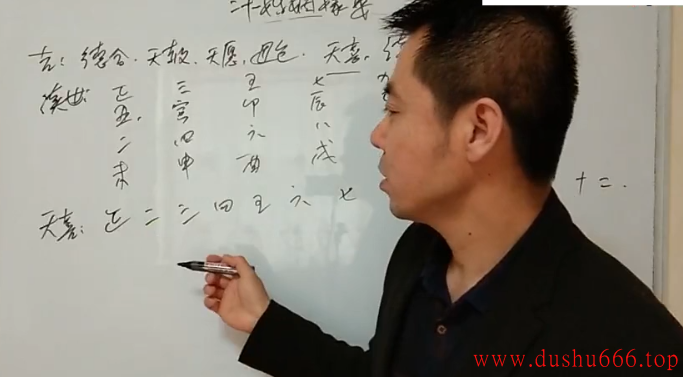 婚姻嫁娶
吉: 德合. 天赦. 天愿. 天喜. 续
续世: 正 三 五 七 九
丑. 寅 卯 辰
二 四 六 八
未 申 酉 戌
天喜: 正 二 三 四 五 六 七 十二.
www.dushu666.top